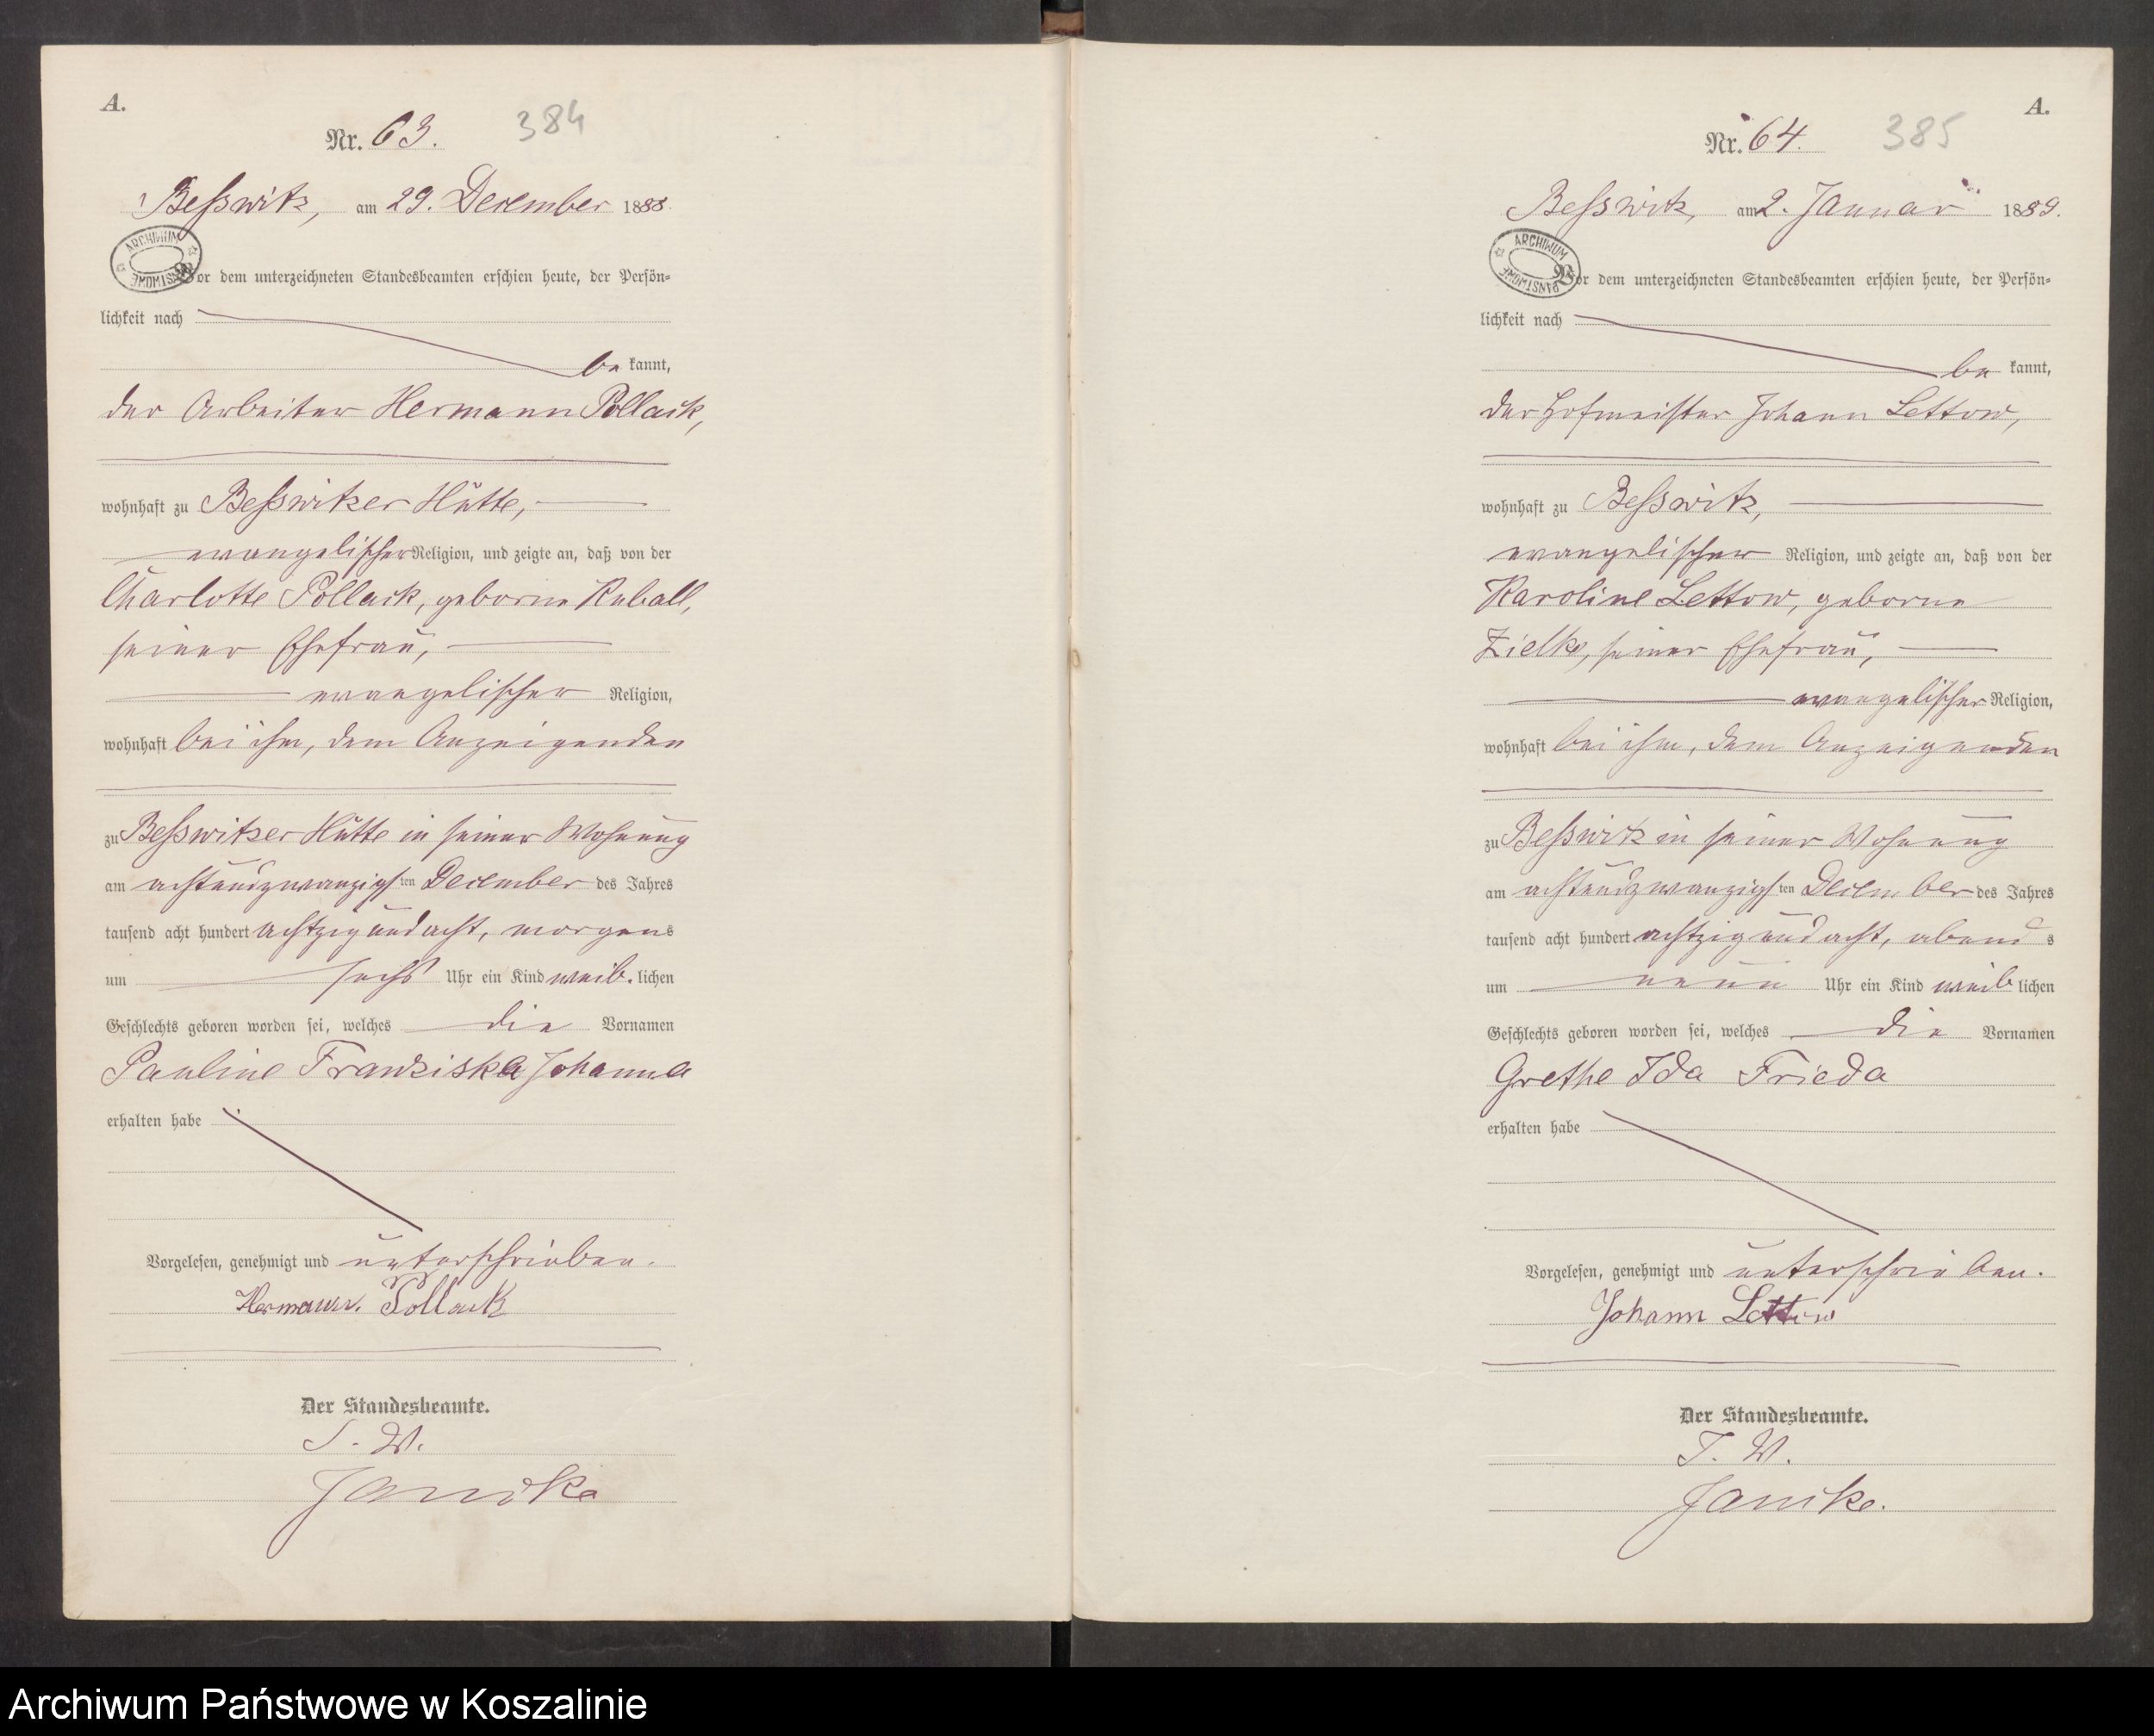 A.
Nr. 63. 384
Beßwitz, am 29. December 1888.
ARCHIWUM PAŃSTWOWE
Vor dem unterzeichneten Standesbeamten erschien heute, der Persön=
lichkeit nach
be kannt,
der Arbeiter Hermann Pollack,
wohnhaft zu Beßwitzer Hütte,
evangelischer Religion, und zeigte an, daß von der
Charlotte Pollack, geborne Kuball,
seiner Ehefrau,
evangelischer Religion,
wohnhaft bei ihm, dem Anzeigenden
zu Beßwitzer Hütte in seiner Wohnung
am achtundzwanzigsten December des Jahres
tausend acht hundert achtzig und acht, morgens
um sechs Uhr ein Kind weib. lichen
Geschlechts geboren worden sei, welches die Vornamen
Pauline Franziska Johanna
erhalten habe
Vorgelesen, genehmigt und unterschrieben.
Hermann. Pollack
Der Standesbeamte.
J. W.
Janike
A.
Nr. 64. 385
Beßwitz, am 2. Januar 1889.
ARCHIWUM PAŃSTWOWE
Vor dem unterzeichneten Standesbeamten erschien heute, der Persön=
lichkeit nach
be kannt,
der Hofmeister Johann Lettow,
wohnhaft zu Beßwitz,
evangelischer Religion, und zeigte an, daß von der
Karoline Lettow, geborne
Zielke, seiner Ehefrau,
evangelischer Religion,
wohnhaft bei ihm, dem Anzeigenden
zu Beßwitz in seiner Wohnung
am achtundzwanzigsten December des Jahres
tausend acht hundert achtzig und acht, abend s
um neun Uhr ein Kind weib lichen
Geschlechts geboren worden sei, welches die Vornamen
Grethe Ida Frieda
erhalten habe
Vorgelesen, genehmigt und unterschrieben.
Johann Lettow
Der Standesbeamte.
J. W.
Janike.
Archiwum Państwowe w Koszalinie